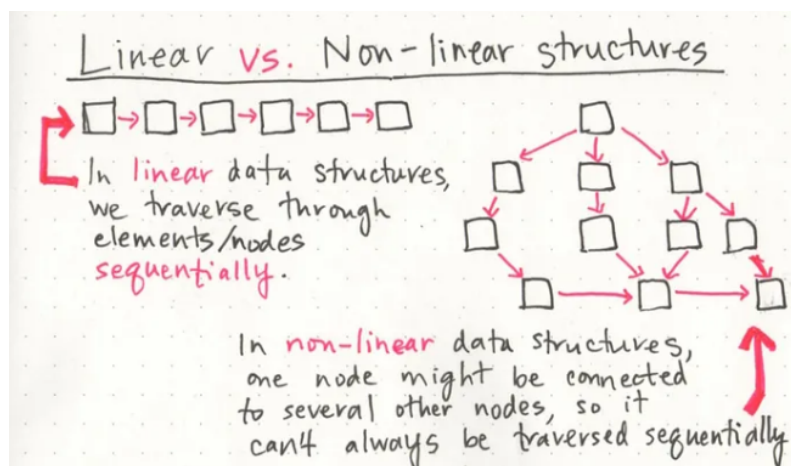 Linear vs. Non-linear structures
In linear data structures,
we traverse through
elements/nodes
sequentially.
In non-linear data structures,
one node might be connected
to several other nodes, so it
can't always be traversed sequentially